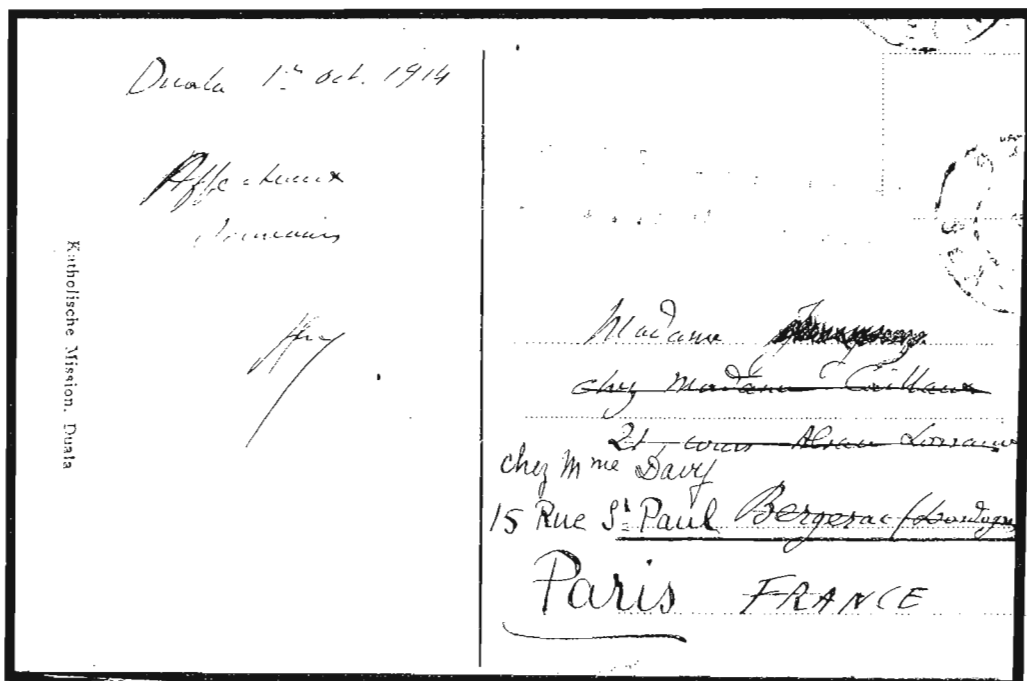 Duala 1er Oct. 1914
Affectueux
souvenirs
Katholische Mission. Duala
Madame
chez Madame Caillaux
21, cours Alsace Lorraine
chez Mme Davy
15 Rue St Paul Bergerac (Dordogne
Paris FRANCE